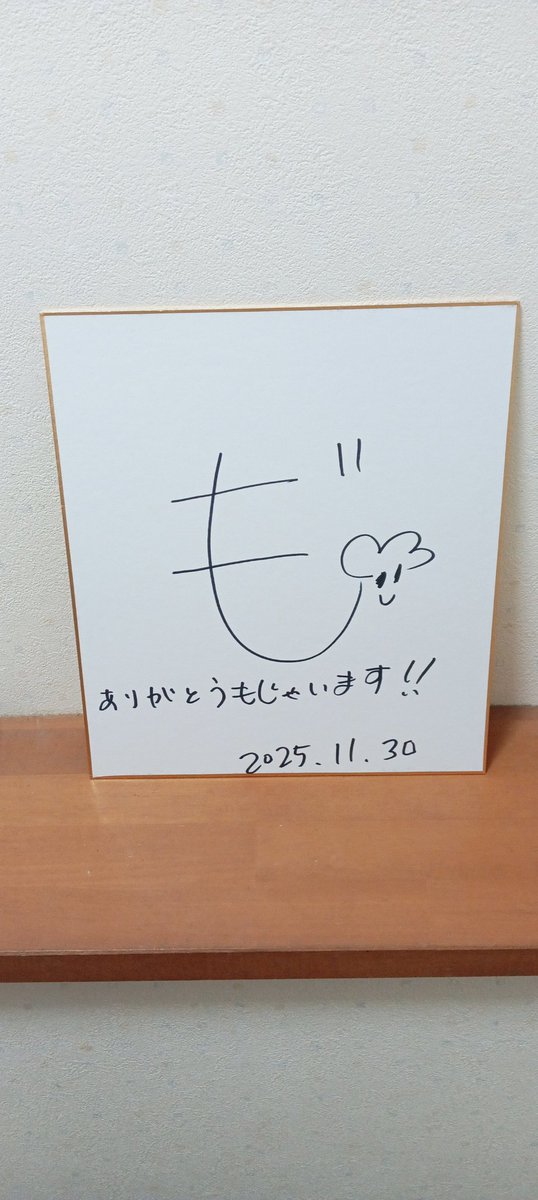 も"
ありがとうもじゃいます!!
2025.11.30